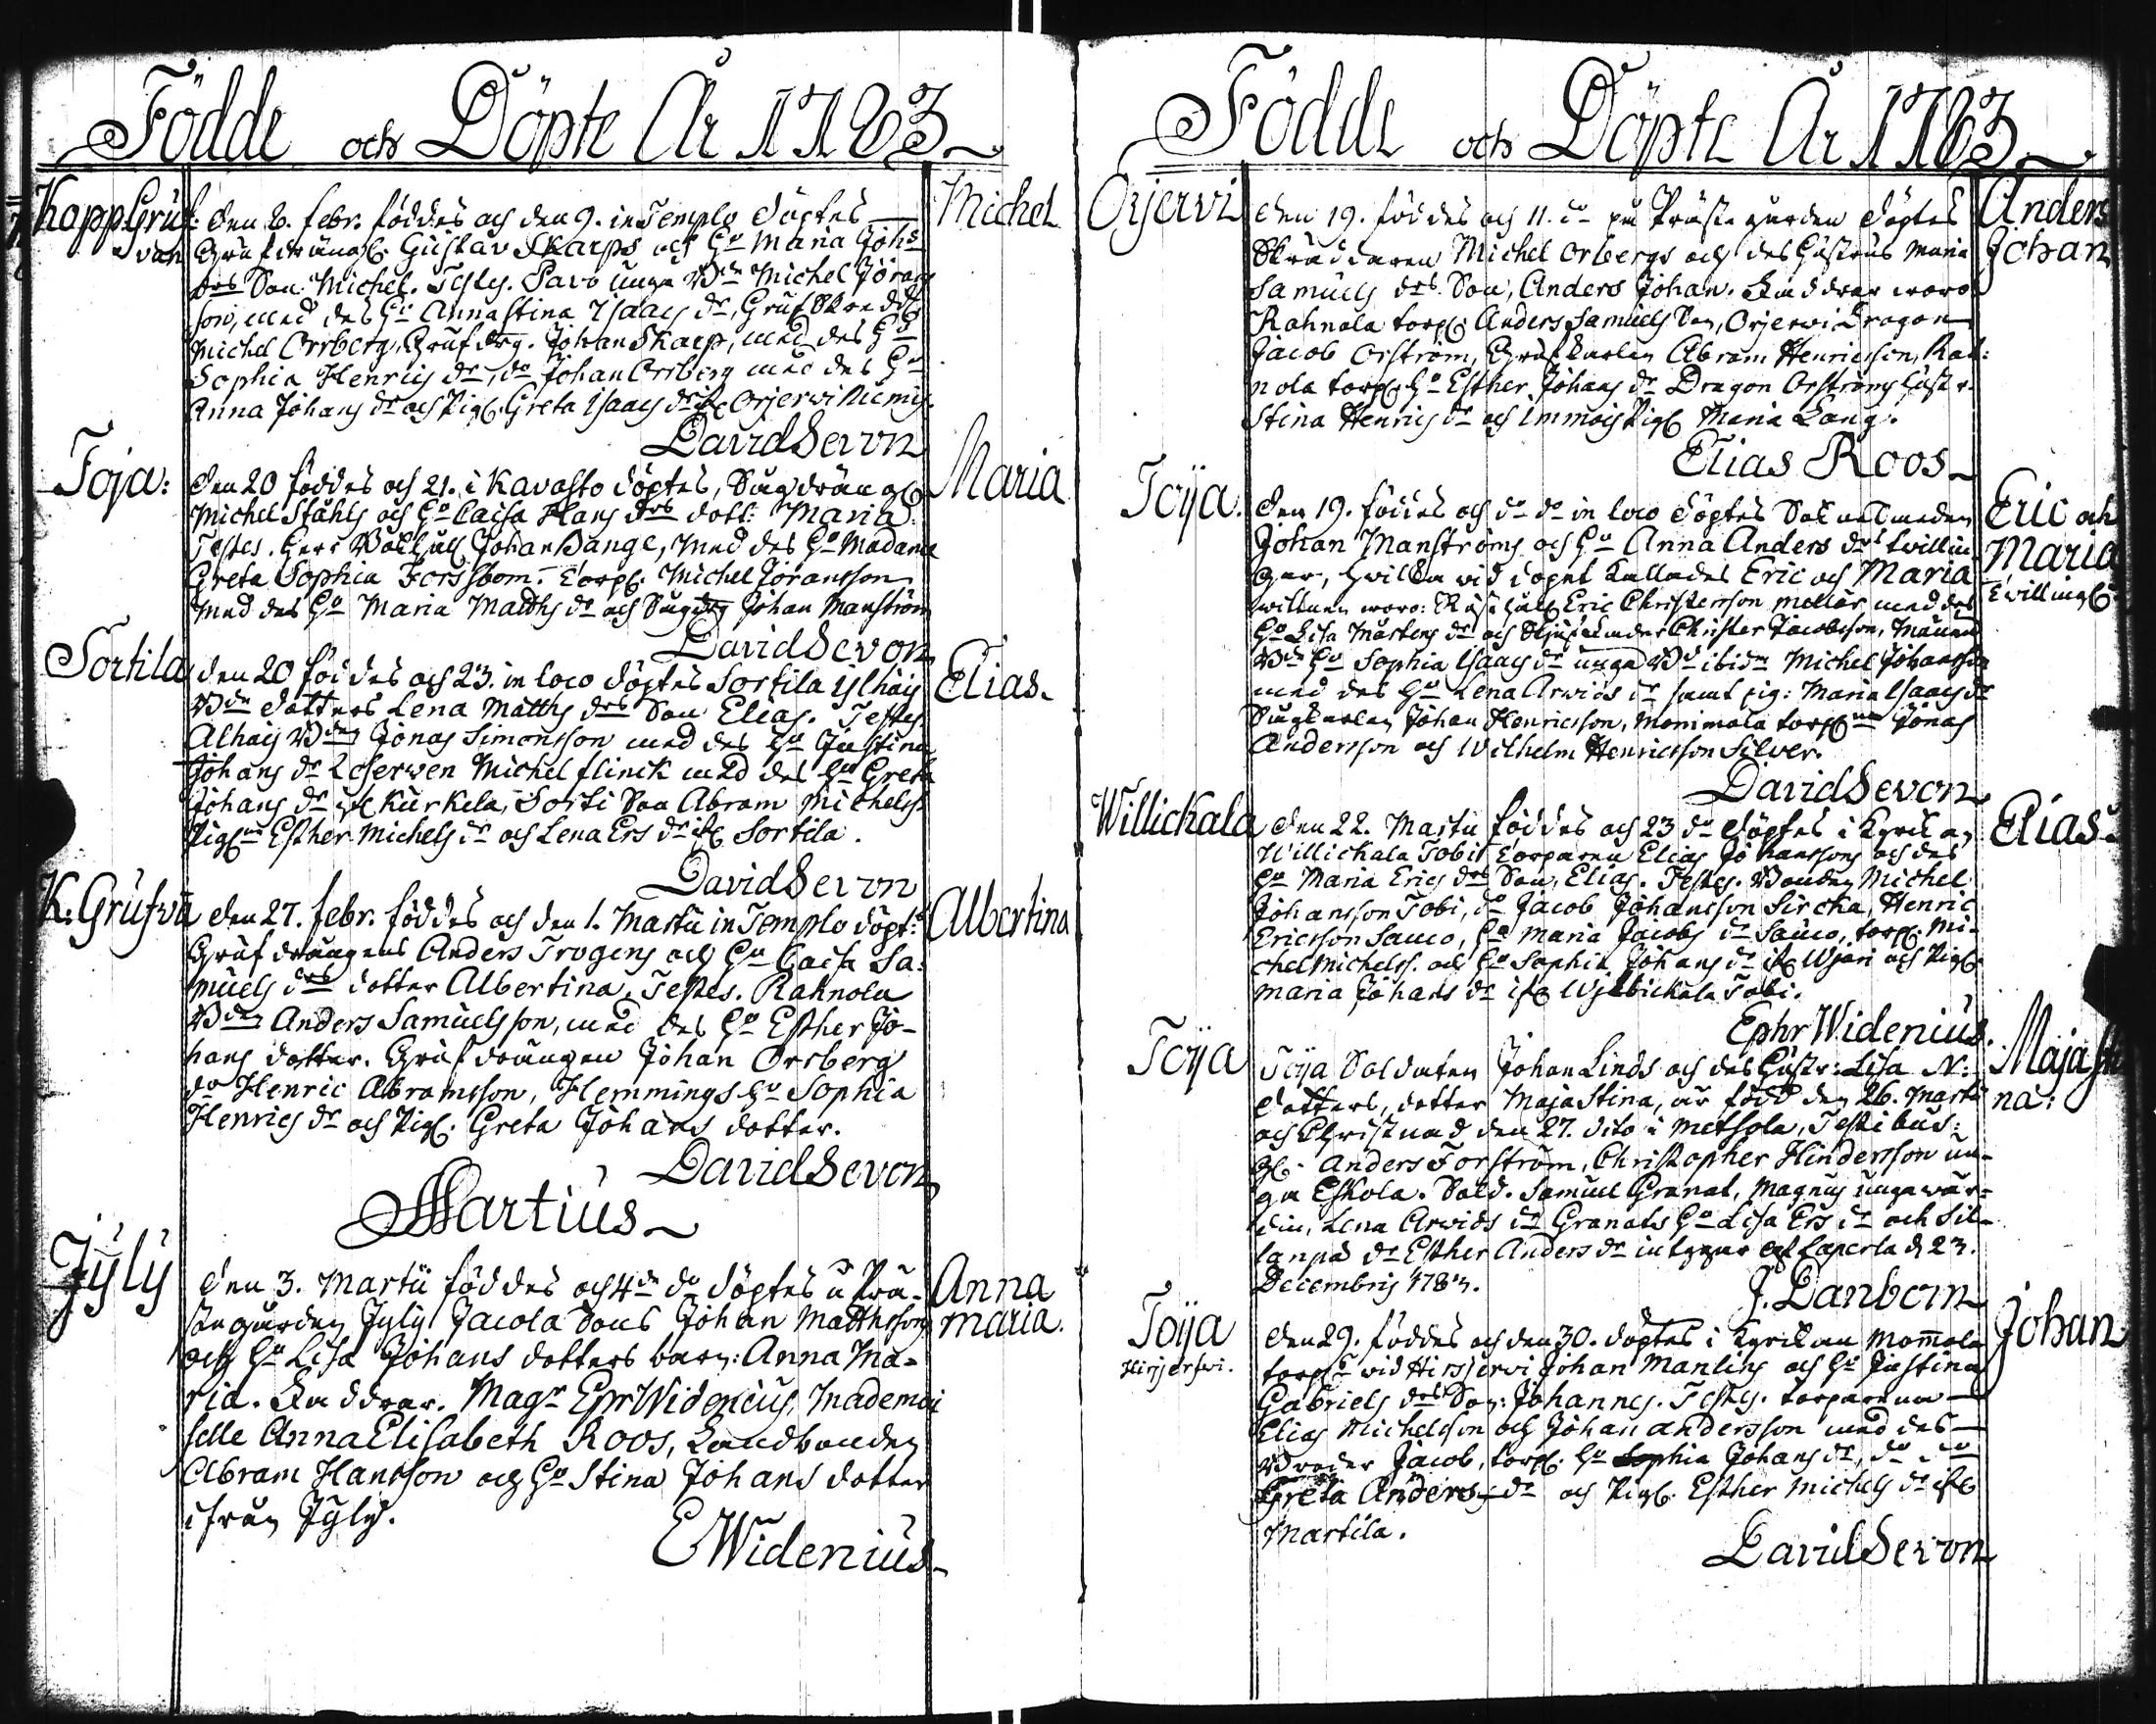 Födde och Döpte År 1783
KoppGruf: den 8. febr. föddes och den 9. in Templo döptes Michel
van Grufdräng: Gustav Skarps och Hu Maria Johs
drs Son: Michel. Testes. Pavo unga Bdn Michel Jörans
son, med des Hu Anna Stina Isaacs dr, Gruf
Michel Orrberg, Grufdrg. Johan Skarp, med des Hu
Sophia Henrics dr, do Johan Orrberg med des Hu
Anna Johans dr och Pig: Greta Isaacs dr Orjervi
David Sevon
Toja: den 20 föddes och 21. i Kavasto döptes, Sågdräng Maria
Michel Ståhls och Hu Caisa Hans drs dott: Maria.
Testes. Herr Johan Bange, med des Hu Madame
Greta Sophia Forssbom. Torp: Michel Jöransson
med des Hu Maria Matths dr och Sågdrg Johan Manström
David Sevon
Sortila den 20 föddes och 23. in loco döptes Sortila Ylhäis Elias
Bdn dotters Lena Matths drs Son Elias. Testes.
Alhais Bden Jonas Simonsson med des Hu Justina
Johans dr Michel flinck med des Hu Greta
Johans dr Kurkela, Sorti Son Abram Michelss
Pig: Esther Michels dr och Lena Ers dr Sortila.
David Sevon
K: Grufva den 27. febr. föddes och den 1. Martii in Templo döpt: Albertina
Grufdrängens Anders Trogens och Hu Caisa Sa:
muels drs dotter Albertina. Testes. Rahnola
Bden Anders Samuelsson, med des Hu Esther Jo-
hans dotter. Grufdrängen Johan Orrberg
do Henric Abramsson, Hemmings Hu Sophia
Henrics dr och Pig: Greta Johans dotter.
David Sevon
Martius
Jyly den 3. Martii föddes och 4de do döptes i Prä- Anna
stegården Jyly Jacola Sons Johan Matthssons maria.
och Hu Lisa Johans dotters barn: Anna Ma-
ria. Faddrar. Magr Ephr Widenius, Mademoi
selle Anna Elisabeth Roos, Landbonden
Abram Hansson och Hu Stina Johans dotter
ifrån Jyly.
E Widenius
Födde och Döpte År 1783
Orjervi den 19. föddes och 11. do på Prästegården döptes Anders
Skräddaren Michel Orbergs och des Hustrus Maria Johan
Samuels drs Son, Anders Johan. Faddrar woro
Rahnola torp: Anders Samuels Son, Orjervi Dragon
Jacob Orström, Grufkarlen Abram Henricsson, Rah:
nola torp: Hu Esther Johans dr Dragon Orströms hustr.
Stina Henrics dr och Immois Pig: Maria Lang.
Elias Roos
Toija. den 19. föddes och do do in loco döptes Eric och
Johan Manströms och Hu Anna Anders drs twillin Maria
gar, hvilka vid dopet kallades Eric och Maria Twilling:
wittnen woro: Eric Christersson mellör med des
Hu Lisa Mårtens dr och Christer Jacobsson,
Bdn Hu Sophia Isaacs dr unga Bdn ibidm Michel Johansson
med des Hu Lena Arvids dr samt pig: Maria Isaacs dr
Sågkarlen Johan Henricsson, Monimala torp: Jonas
Andersson och Wilhelm Henricsson Silver.
David Sevon
Willickala den 22. Martii föddes och 23 do döptes i Kyrkan Elias
Willickala Tobis Torparen Elias Johanssons och des
Hu Maria Erics drs Son, Elias. Testes. Bonden Michel
Johansson Tobi, do Jacob Johansson Sircka, Henric
Ericsson Sauco, Hu Maria Jacobs dr Sauco, torp: Mi-
chel Michelss. och Hu Sophia Johans dr och Pig:
Maria Johans dr Willickala Tobi.
Ephr Widenius.
Toija Toija Soldaten Johan Linds och des Hustr: Lisa N: Maja sti
dotters, dotter Maja Stina, är född den 26. Martii na:
och Christnad den 27. dito i Metsola, Testibus:
Anders Forström, Christopher Hindersson un-
ga Eskola. Sold. Samuel Granat, Magnus unga wär-
din, Lena Arvids dr Granats Hu Lisa Ers dr och Sil-
lanpä dr Esther Anders dr d 23.
Decembris 1783.
J. Lanborn
Toija den 29. föddes och den 30. döptes i Kyrkan Momola Johan
Hirsjerfvi. torp: vid Hirsjervi Johan Manlins och Hu Justina
Gabriels drs Son: Johannes. Testes. torparena
Elias Michelsson och Johan Andersson med des
Broder Jacob, torp: Hu Sophia Johans dr, do do
Greta Anders dr och Pig: Esther Michels dr
Martila.
David Sevon